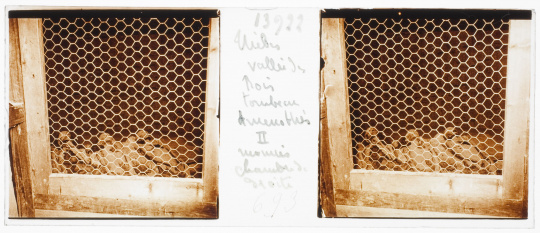 13922
Thèbes
vallée des
Rois
tombeau
Amenothès
II
momies
chambre de
droite